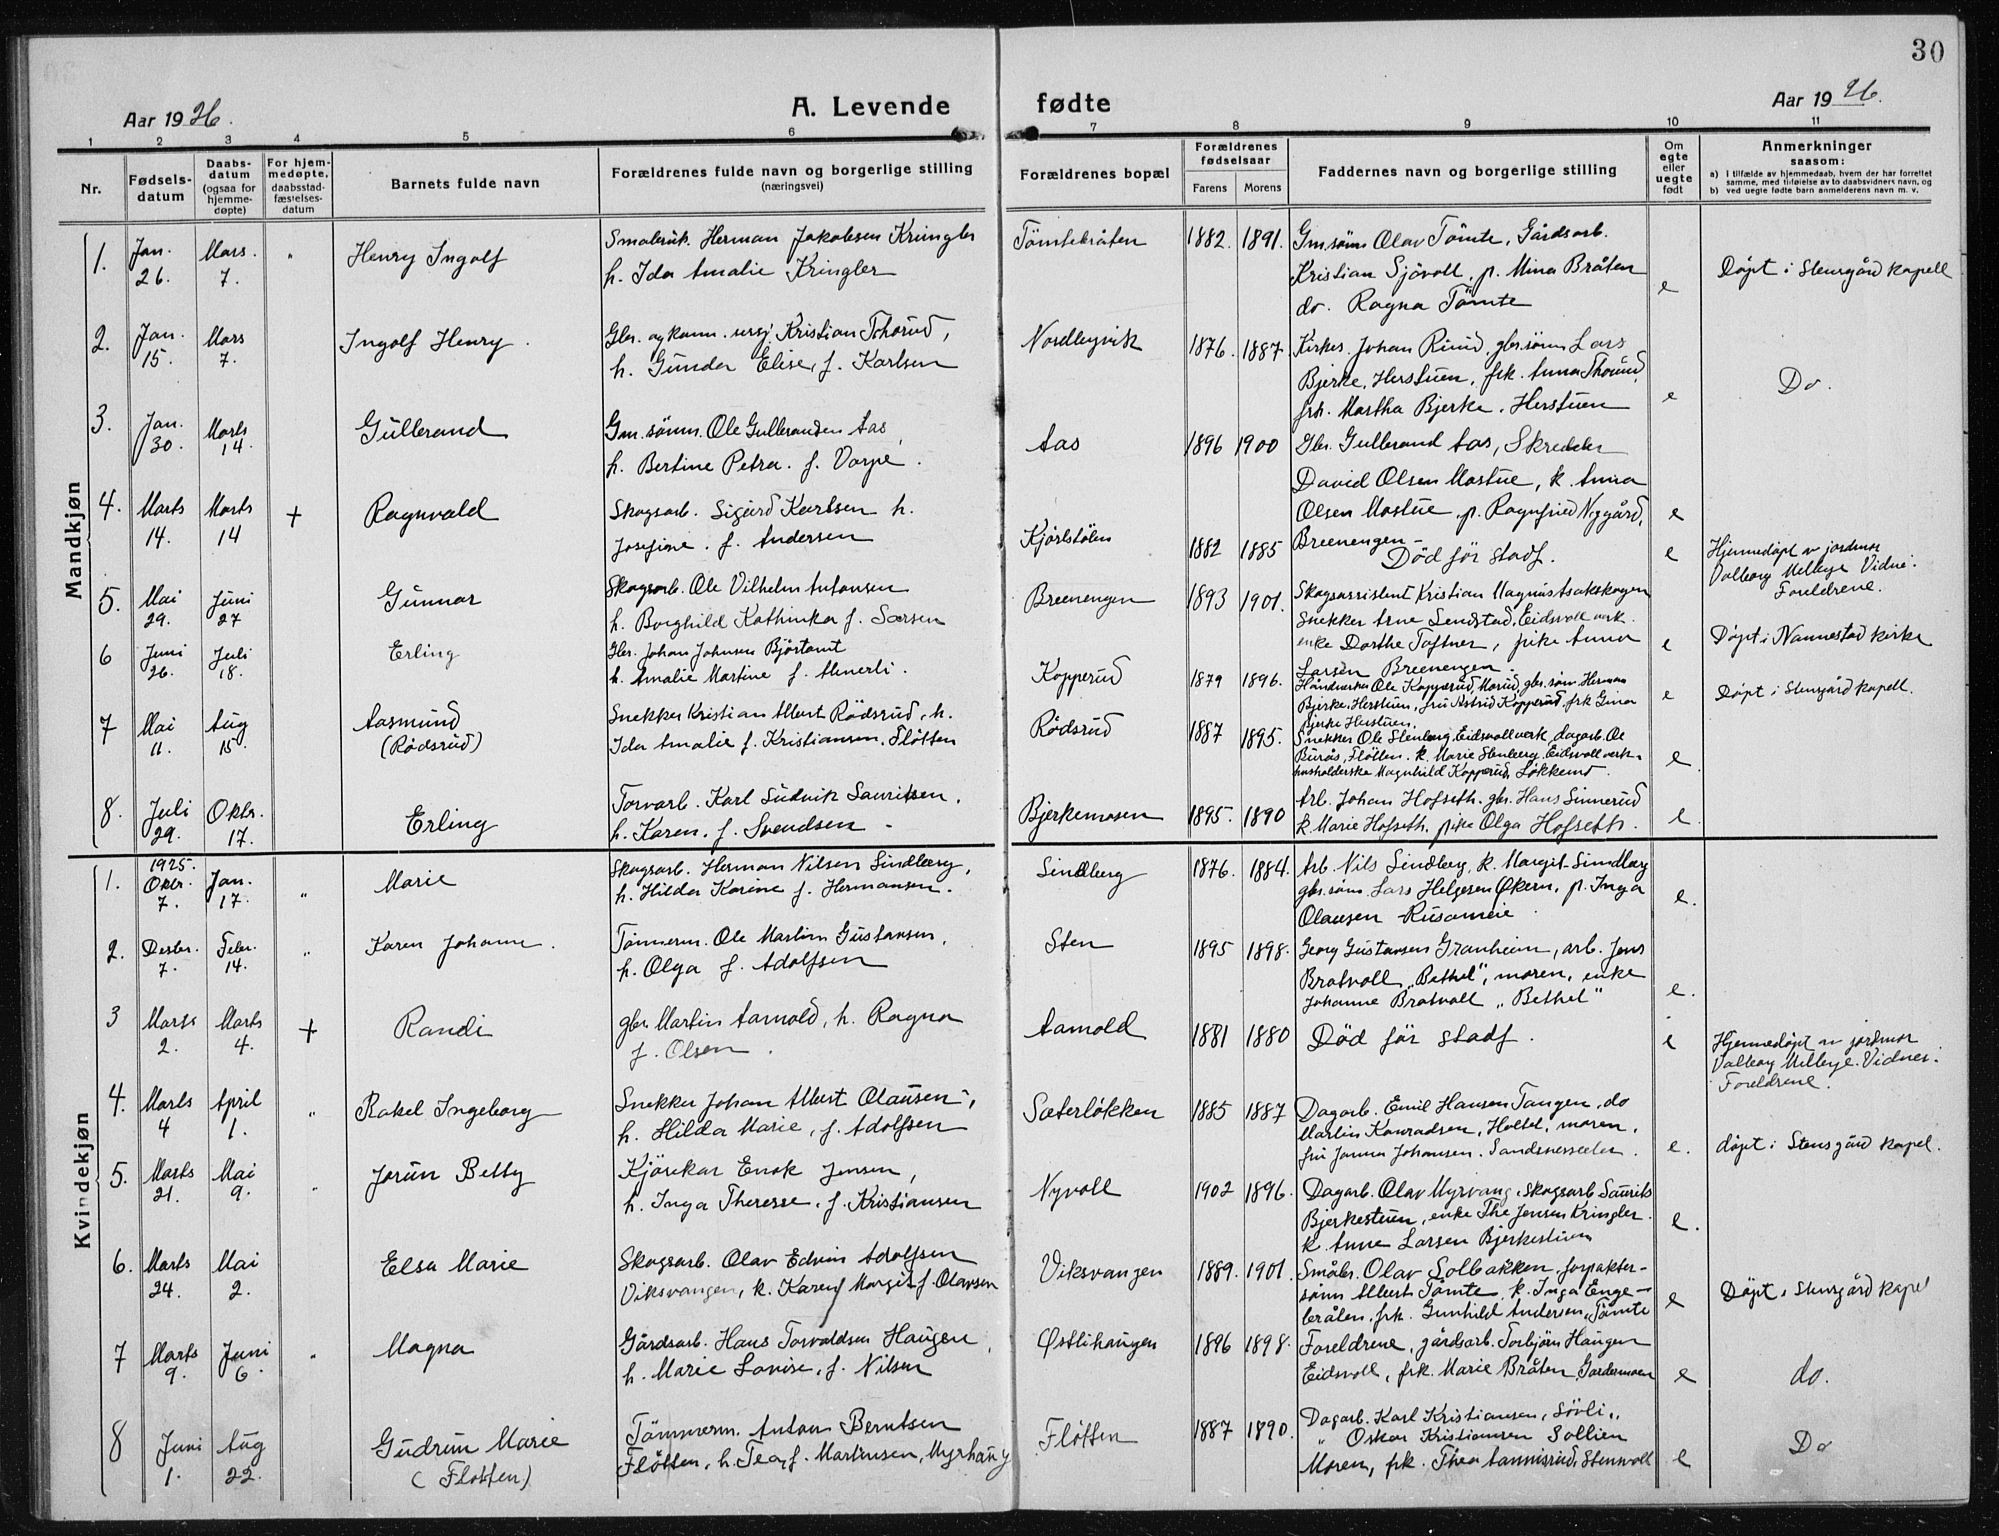 30
Aar 1926.
A. Levende fødte
Aar 1926.
1 2 3 4 5 6 7 8 9 10 11
Nr.
Fødsels-
datum
Daabs-
datum
(ogsaa for
hjemme-
døpte)
For hjem-
medøpte,
daabsstad-
fæstelses-
datum
Barnets fulde navn
Forældrenes fulde navn og borgerlige stilling
(næringsvei)
Forældrenes bopæl
Forældrenes
fødselsaar
Farens
Morens
Faddernes navn og borgerlige stilling
Om
egte
eller
uegte
født
Anmerkninger
saasom:
a) I tilfælde av hjemmedaab, hvem der har forrettet
samme, med tilføielse av to daabsvidners navn, og
b) ved uegte fødte barn anmelderens navn m. v.
Mandkjøn
1. Jan. 26. Mars. 7. "
Henry Ingolf
Smabruk. Herman Jakobsen Kringler
h. Ida Amalie Kringler
Tømtebråten
1882. 1891.
Gm.sønn Olav Tømte, Gårdsarb.
Kristian Sjøvoll, p. Mina Bråten
do. Ragna Tømte
e
Døpt i Stensgård kapell
2. Jan. 15. Mars 7.
Ingolf Henry.
Gbr. og kom. Kristian Thorud,
h. Gunda Elise, f. Karlsen
Nordbyvik
1876. 1887.
Kirkes. Johan Ruud, gbr.sønn Lars
Bjerke, Herstuen, frk. Anna Thorud,
frk. Martha Bjerke, Herstuen
e
Do.
3. Jan. 30. Marts 14.
Gullerand
Gm. sønn. Ole Gullerandsen Aas,
h. Bertine Petra. f. Varpe.
Aas
1896 1900
Gbr. Gullerand Aas, Skredder
David Olsen Mostue, k. Anna
Olsen Mostue, p. Ragnfrid Nygård,
Breenengen
e
4. Marts 14. Marts 14 +
Ragnvald
Skogsarb. Sigurd Karlsen h.
Josefine. f. Andersen
Kjørlstølen
1882 1885
Død før stadf.
e
Hjemmedøpt av jordmor
Valborg Melbye Vidne:
Foreldrene.
5. Mai 29. Juni 27
Gunnar
Skogsarb. Ole Vilhelm Antonsen
h. Borghild Kathinka f. Larsen
Breenengen
1893 1901.
Skogsassistent Kristian Magnus
Snekker Arne Lundstad, Eidsvoll verk.
enke Dorthe Toftner, pike Anna
Larsen Breenengen.
e
Døpt i Nannestad kirke
6 Juni 26. Juli 18.
Erling
Gbr. Johan Johnsen Bjørtomt
h. Amalie Martine f. Almerli.
Kopperud
1879 1896.
Håndverker Ole Kopperud, Morud, gbr. sønn Herman
Bjerke, Herstuen, fru Astrid Kopperud, frk Gina
Bjerke Herstuen.
e
Døpt i Stensgård kapell.
7 Mai 11. Aug 15.
Aasmund
(Rødsrud)
Snekker Kristian Albert Rødsrud, h.
Ida Amalie f. Kristiansen. Fløtten
Rødsrud
1887 1895.
Snekker Ole Stenberg, Eidsvoll verk, dagarb. Ole
Burås, Fløtten. k. Marie Stenberg, Eidsvoll verk,
husholderske Magnhild Kopperud, Løkkend.
e
8. Juli 29. Oktr. 17.
Erling
Torvarb. Karl Ludvik Lauritsen,
h. Karen. f. Svendsen
Bjerkemosen
1895. 1890
Arb. Johan Hofseth. gbr. Hans Sinnerud
k. Marie Hofseth, pike Olga Hofseth.
e
Kvindekjøn
1. 1925. Oktr. 7. Jan. 17. "
Marie
Skogsarb. Herman Nilsen Lindberg,
h. Hilda Karine f. Hermansen.
Lindberg
1876. 1884.
Arb. Nils Lindberg, k. Margit Lindberg
gbr.sønn Lars Helgesen Økern, p. Inga
Olausen Rusameie
e.
2. Desbr. 7. Febr. 14. "
Karen Johanne.
Tømmerm. Ole Martin Gustavsen,
h. Olga f. Adolfsen
Sten
1895 1898.
Georg Gustavsen Granheim, arb. Jens
Bratvoll "Bethel", moren, enke
Johanne Bratvoll "Bethel"
e.
3 Marts 2. Marts 4. +
Randi
gbr. Martin Aamold, h. Ragna
f. Olsen.
Aamold
1881 1880
Død før stadf.
e
Hjemmedøpt av jordmor
Valborg Melbye. Vidner:
Foreldrene.
4. Marts 4 April 1. "
Rakel Ingeborg
Snekker Johan Albert Olausen,
h. Hilda Marie, f. Adolfsen
Sæterløkken
1885 1887
Dagarb. Emil Hansen Tangen, do
Martin Konradsen, Holtet, moren,
fru Janna Johansen.
e.
døpt i Stensgård kapel.
5. Marts 21. Mai 9. "
Jorun Betty
Kjørekar Enok Jensen,
h. Inga Therese, f. Kristiansen
Nyvoll
1902 1896.
Dagarb. Olav Myrvang, skogsarb Laurits
Bjerkestuen, enke Thea Jensen Kringler.
k. Anne Larsen Bjerkestuen
e.
6. Marts 24. Mai 2. "
Elsa Marie
Skogsarb. Olav Edvin Adolfsen
Viksvangen, k. Karen Margit f. Olavsen
Viksvangen
1889. 1901.
Småbr. Olav Solbakken, forpakter-
sønn Albert Tømte, k. Inga Enge-
bråten, frk. Gunhild Andersen, Tømte
e
Døpt i Stensgård kapel
7 Marts 9. Juni 6. "
Magna
Gårdsarb. Hans Torvaldsen Haugen,
h. Marie Lovise, f. Nilsen
Østlihaugen
1896 1898.
Foreldrene, gårdsarb. Torbjørn Haugen
Eidsvoll, frk. Marie Bråten, Gardermoen
e
do.
8 Juni 1. Aug 22.
Gudrun Marie
(Fløtten)
Tømmerm. Anton Berntsen
Fløtten, h. Tea, f. Martinsen, Myrhaug
Fløtten
1887 1890.
Dagarb. Karl Kristiansen, Søvli,
" Oskar Kristiansen Sollien
Moren, frk. Thea Aannisrud, Stenvoll
e
Do